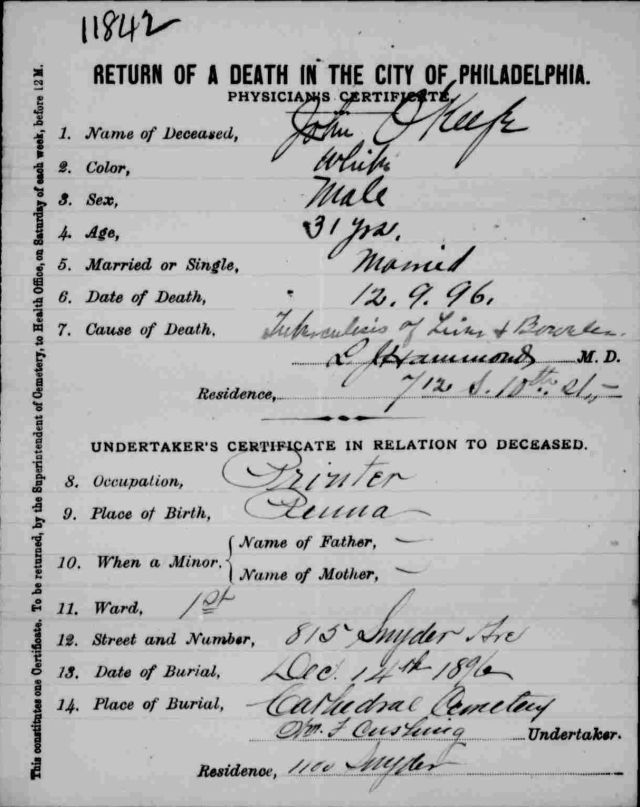 11842
RETURN OF A DEATH IN THE CITY OF PHILADELPHIA.
PHYSICIAN'S CERTIFICATE
1. Name of Deceased, John O'Keefe
2. Color, White
3. Sex, Male
4. Age, 31 yrs.
5. Married or Single, Married
6. Date of Death, 12.9.96.
7. Cause of Death, Tuberculosis of &
L J Hammond M. D.
Residence, 712 S. 10th St.
UNDERTAKER'S CERTIFICATE IN RELATION TO DECEASED.
8. Occupation, Printer
9. Place of Birth, Penna
10. When a Minor, { Name of Father, —
Name of Mother, —
11. Ward, 1st
12. Street and Number, 815 Snyder Ave
13. Date of Burial, Dec. 14th 1896
14. Place of Burial, Cathedral Cemetery
Wm. F Cushing Undertaker.
Residence, 1100 Snyder
This constitutes one Certificate. To be returned, by the Superintendent of Cemetery, to Health Office, on Saturday of each week, before 12 M.